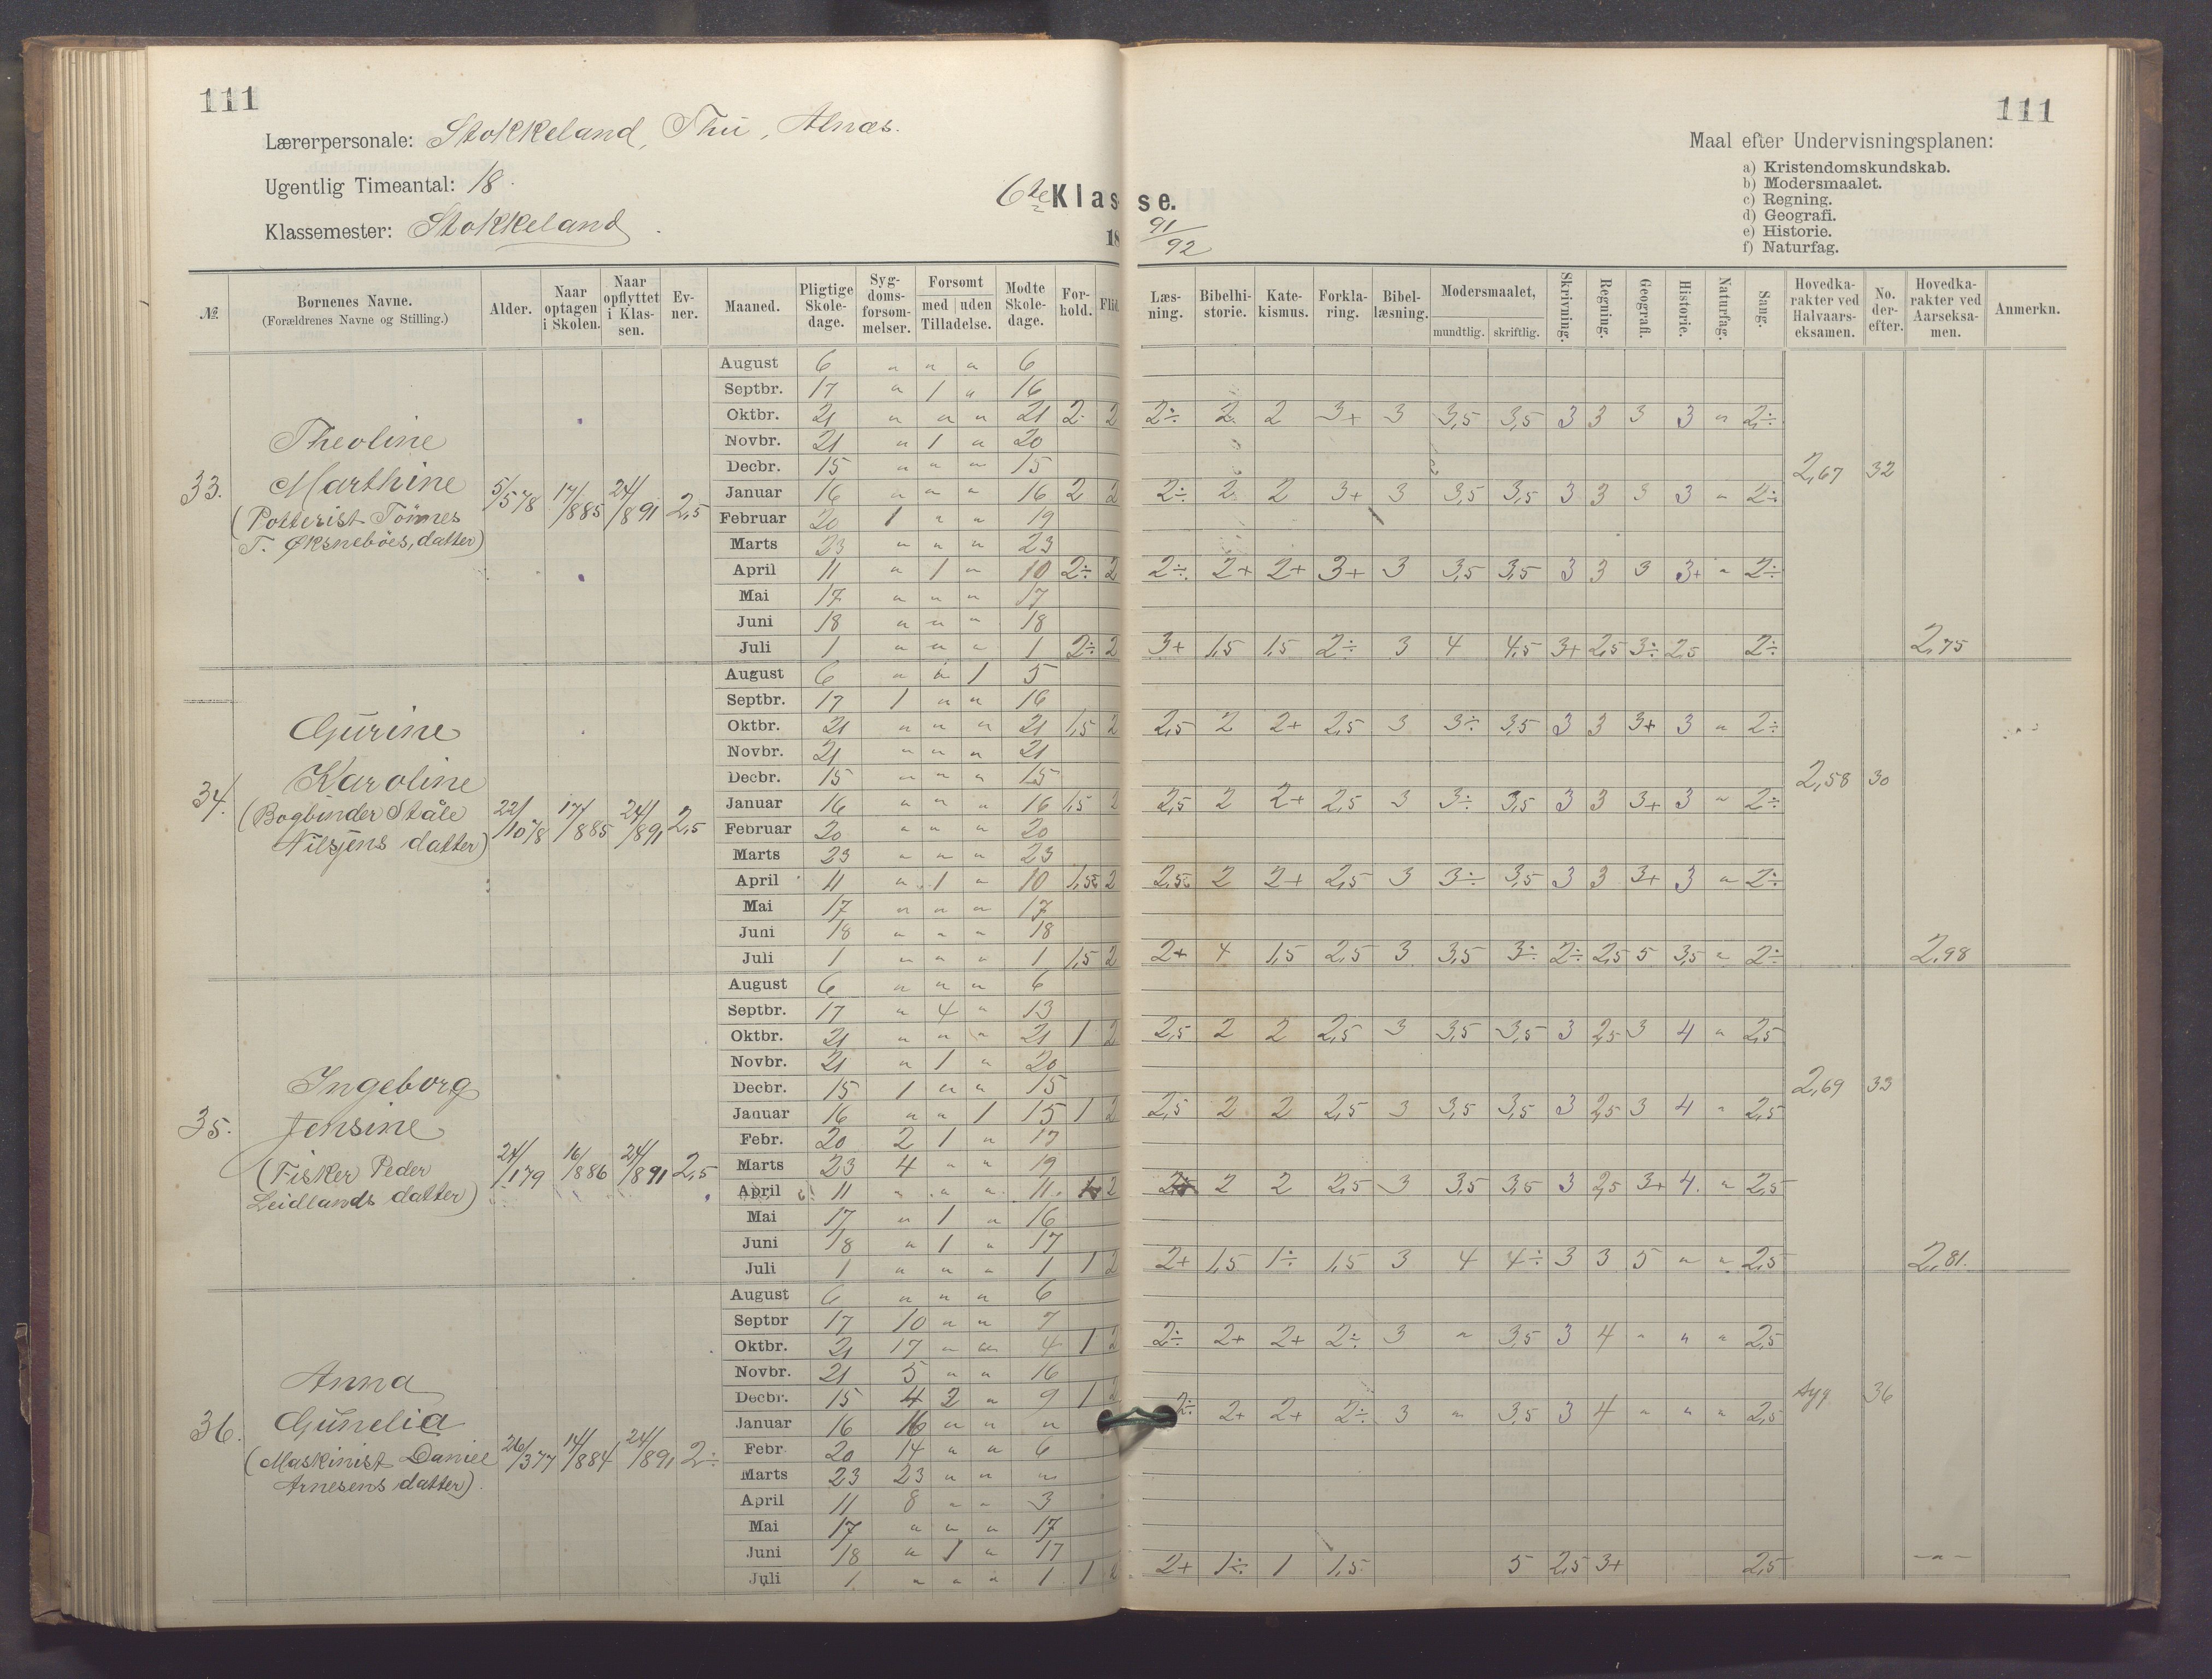 111
111
Lærerpersonale: Stokkeland, Thu, Alnæs.
Ugentlig Timeantal: 18.
Klassemester: Stokkeland
6te Klasse.
18 91/92
Maal efter Undervisningsplanen:
a) Kristendomskundskab.
b) Modersmaalet.
c) Regning.
d) Geografi.
e) Historie.
f) Naturfag.
№ | Børnenes Navne. (Forældrenes Navne og Stilling.) | Alder. | Naar optagen i Skolen. | Naar opflyttet i Klassen. | Evner. | Maaned. | Pligtige Skoledage. | Sygdomsforsømmelser. | Forsømt med uden Tilladelse. | Mødte Skoledage. | Forhold. | Flid. | Læsning. | Bibelhistorie. | Katekismus. | Forklaring. | Bibellæsning. | Modersmaalet, mundtlig. skriftlig. | Skrivning. | Regning. | Geografi. | Historie. | Naturfag. | Sang. | Hovedkarakter ved Halvaarseksamen. | No. derefter. | Hovedkarakter ved Aarseksamen. | Anmerkn.
33. Theoline
Marthine
(Potterist Tönnes
T. Øksneböes, datter)
5/5 78 17/8 85 24/8 91 2,5
August 6 " " " 6
Septbr. 17 " 1 " 16
Oktbr. 21 " " " 21 2 2 2÷ 2 2 3+ 3 3,5 3,5 3 3 3 3 " 2÷
Novbr. 21 " 1 " 20
Decbr. 15 " " " 15 2,67 32
Januar 16 " " " 16 2 2 2÷ 2 2 3+ 3 3,5 3,5 3 3 3 3 " 2÷
Februar 20 1 " " 19
Marts 23 " " " 23
April 11 " 1 " 10 2÷ 2 2÷ 2+ 2+ 3+ 3 3,5 3,5 3 3 3 3+ " 2÷
Mai 17 " " " 17
Juni 18 " " " 18
Juli 1 " " " 1 2÷ 2 3+ 1,5 1,5 2÷ 3 4 4,5 3+ 2,5 3÷ 2,5 2÷ 2,75
34. Gurine
Karoline
(Bogbinder Ståle
Nilsens datter)
22/10 78 17/8 85 24/8 91 2,5
August 6 " " 1 5
Septbr. 17 1 " " 16
Oktbr. 21 " " " 21 1,5 2 2,5 2 2+ 2,5 3 3÷ 3,5 3 3 3+ 3 " 2÷
Novbr. 21 " " " 21
Decbr. 15 " " " 15 2,58 30
Januar 16 " " " 16 1,5 2 2,5 2 2+ 2,5 3 3÷ 3,5 3 3 3+ 3 " 2÷
Februar 20 " " " 20
Marts 23 " " " 23
April 11 " 1 " 10 1,5 2 2,5 2 2+ 2,5 3 3÷ 3,5 3 3 3+ 3 " 2÷
Mai 17 " " " 17
Juni 18 " " " 18
Juli 1 " " " 1 1,5 2 2+ 4 1,5 2,5 3 3,5 3÷ 2÷ 2,5 5 3,5 " 2÷ 2,98
35. Ingeborg
Jensine
(Fisker Peder
Leidlands datter)
24/1 79 16/8 86 24/8 91 2,5
August 6 " " " 6
Septbr. 17 " 4 " 13
Oktbr. 21 " " " 21 1 2 2,5 2 2 2,5 3 3,5 3,5 3 2,5 3 4 " 2,5
Novbr. 21 " 1 " 20
Decbr. 15 1 " " 15 2,69 33
Januar 16 " " 1 15 1 2 2,5 2 2 2,5 3 3,5 3,5 3 2,5 3 4 " 2,5
Febr. 20 2 1 " 17
Marts 23 4 " " 19
April 11 " " " 11 2 2 2 2,5 3 3,5 3,5 3 2,5 3+ 4 " 2,5
Mai 17 " 1 " 16
Juni 18 " 1 " 17
Juli 1 " " " 1 1 2 2+ 1,5 1÷ 1,5 3 4 4÷ 3 3 5 " " 2,5 2,81
36. Anna
Gunelia
(Maskinist Daniel
Arnesens datter)
26/3 77 14/8 84 24/8 91 2÷
August 6 " " " 6
Septbr 17 10 " " 7
Oktbr. 21 17 " " 4 1 2 2÷ 2+ 2+ 2÷ 3 " 3,5 3 4 " " " 2,5
Novbr. 21 5 " " 16
Decbr. 15 4 2 " 9 1 2 2÷ 2+ 2+ 2÷ 3 " 3,5 3 4 " " " 2,5 syg 36
Januar 16 16 " " "
Febr 20 14 " " 6
Marts 23 23 " " "
April 11 8 " " 3
Mai 17 " " " 17
Juni 18 " 1 " 17
Juli 1 " " " 1 1 2 2+ 1÷ 1 1,5 5 2,5 3+ 2,5 -"-